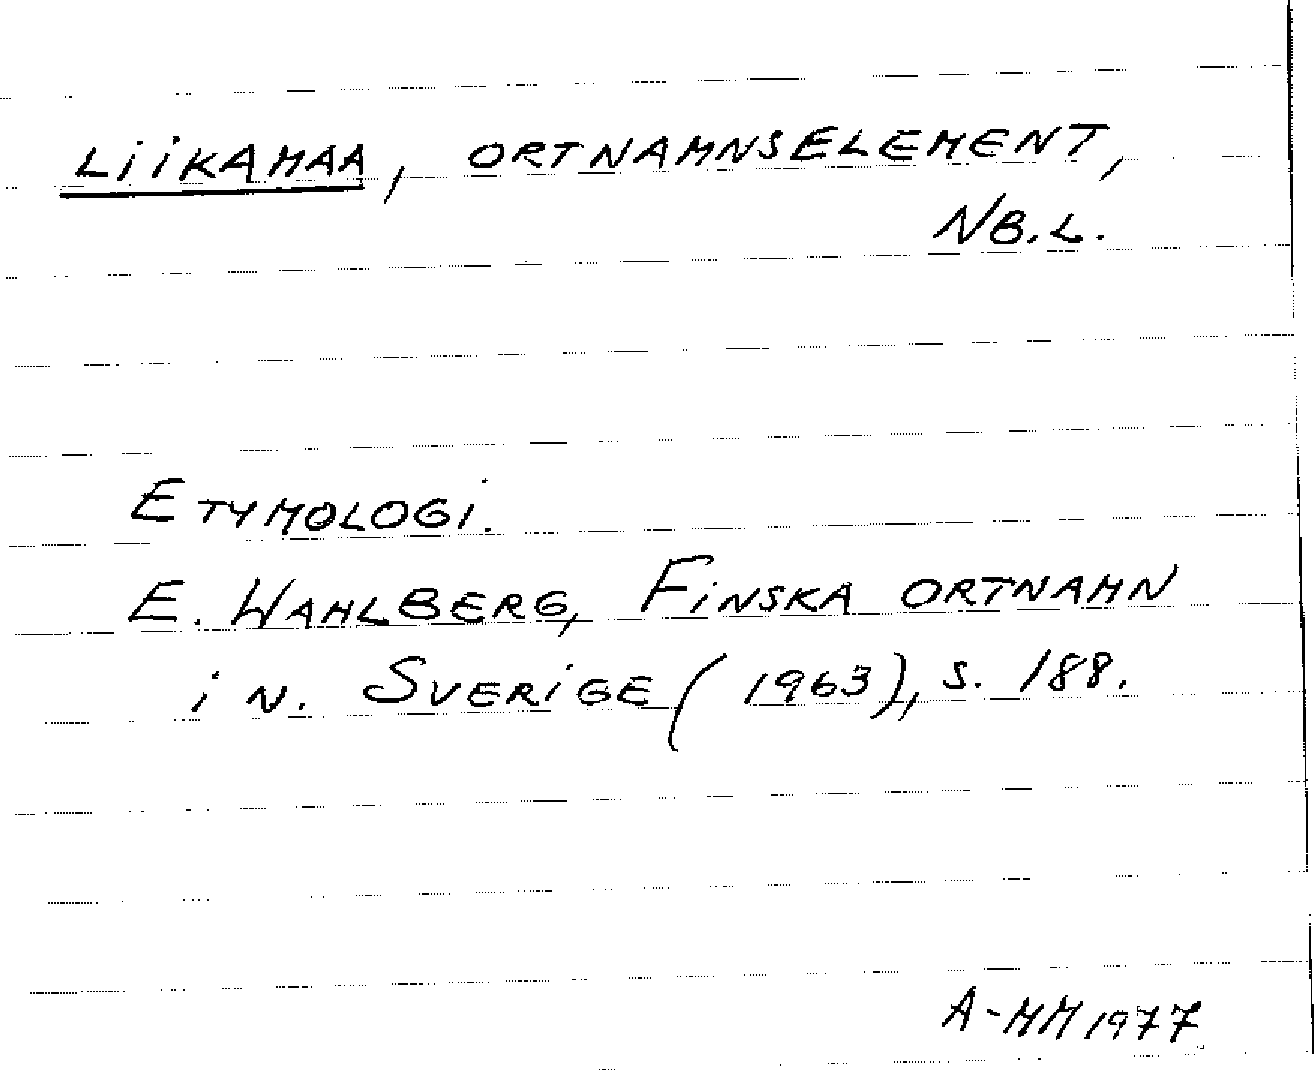 LIIKAMAA, ORTNAMNSELEMENT,
NB.L.
ETYMOLOGI.
E. WAHLBERG, FINSKA ORTNAMN
I N. SVERIGE (1963), S. 188.
A-MM 1977